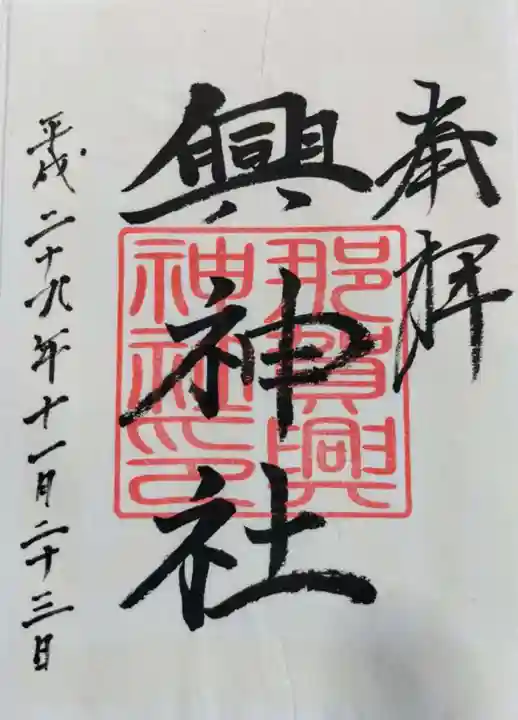 奉拝
興神社
那賀興
神社之印
平成二十九年十一月二十三日